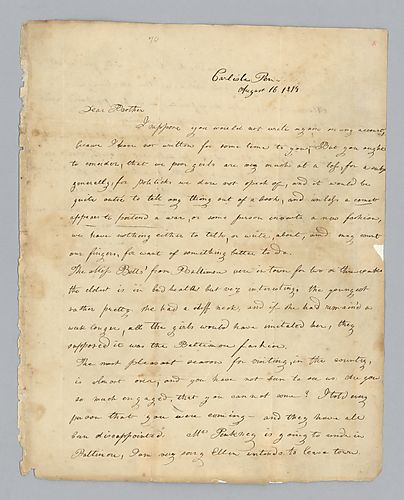 70
Carlisle Pen-
August 16 1818
Dear Brother
I suppose you would not write again on any account,
because I have not written for some time to you, But you ought
to consider, that we poor girls are very much at a loss, for a subject
generally, for politicks we dare not speak of, and it would be
quite outré to tell any thing out of a book, and unless a comet
appears to portend a war, or some person invents a new fashion,
we have nothing either to talk, or write, about, and may count
our fingers, for want of something better to do.
The Miss Bells' from Baltimore were in town for two or three weeks
the eldest is in bad health but very interesting. the youngest
rather pretty. she had a stiff neck, and if she had remain'd a
week longer, all the girls would have imitated her, they
supposed it was the Baltimore fashion.
The most pleasant season for visiting, in the country,
is almost over, and you have not been to see us. Are you
so much engaged, that you can not come? I told every
person that you were coming - and they have all
been disappointed. Mrs Pinkney is going to reside in
Baltimore, I am very sorry Ellen intends to leave town.